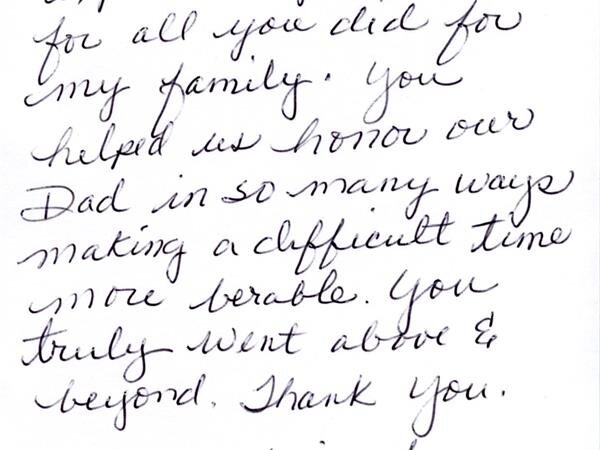 for all you did for
my family. You
helped us honor our
Dad in so many ways
making a difficult time
more berable. You
truly went above &
beyond. Thank You.